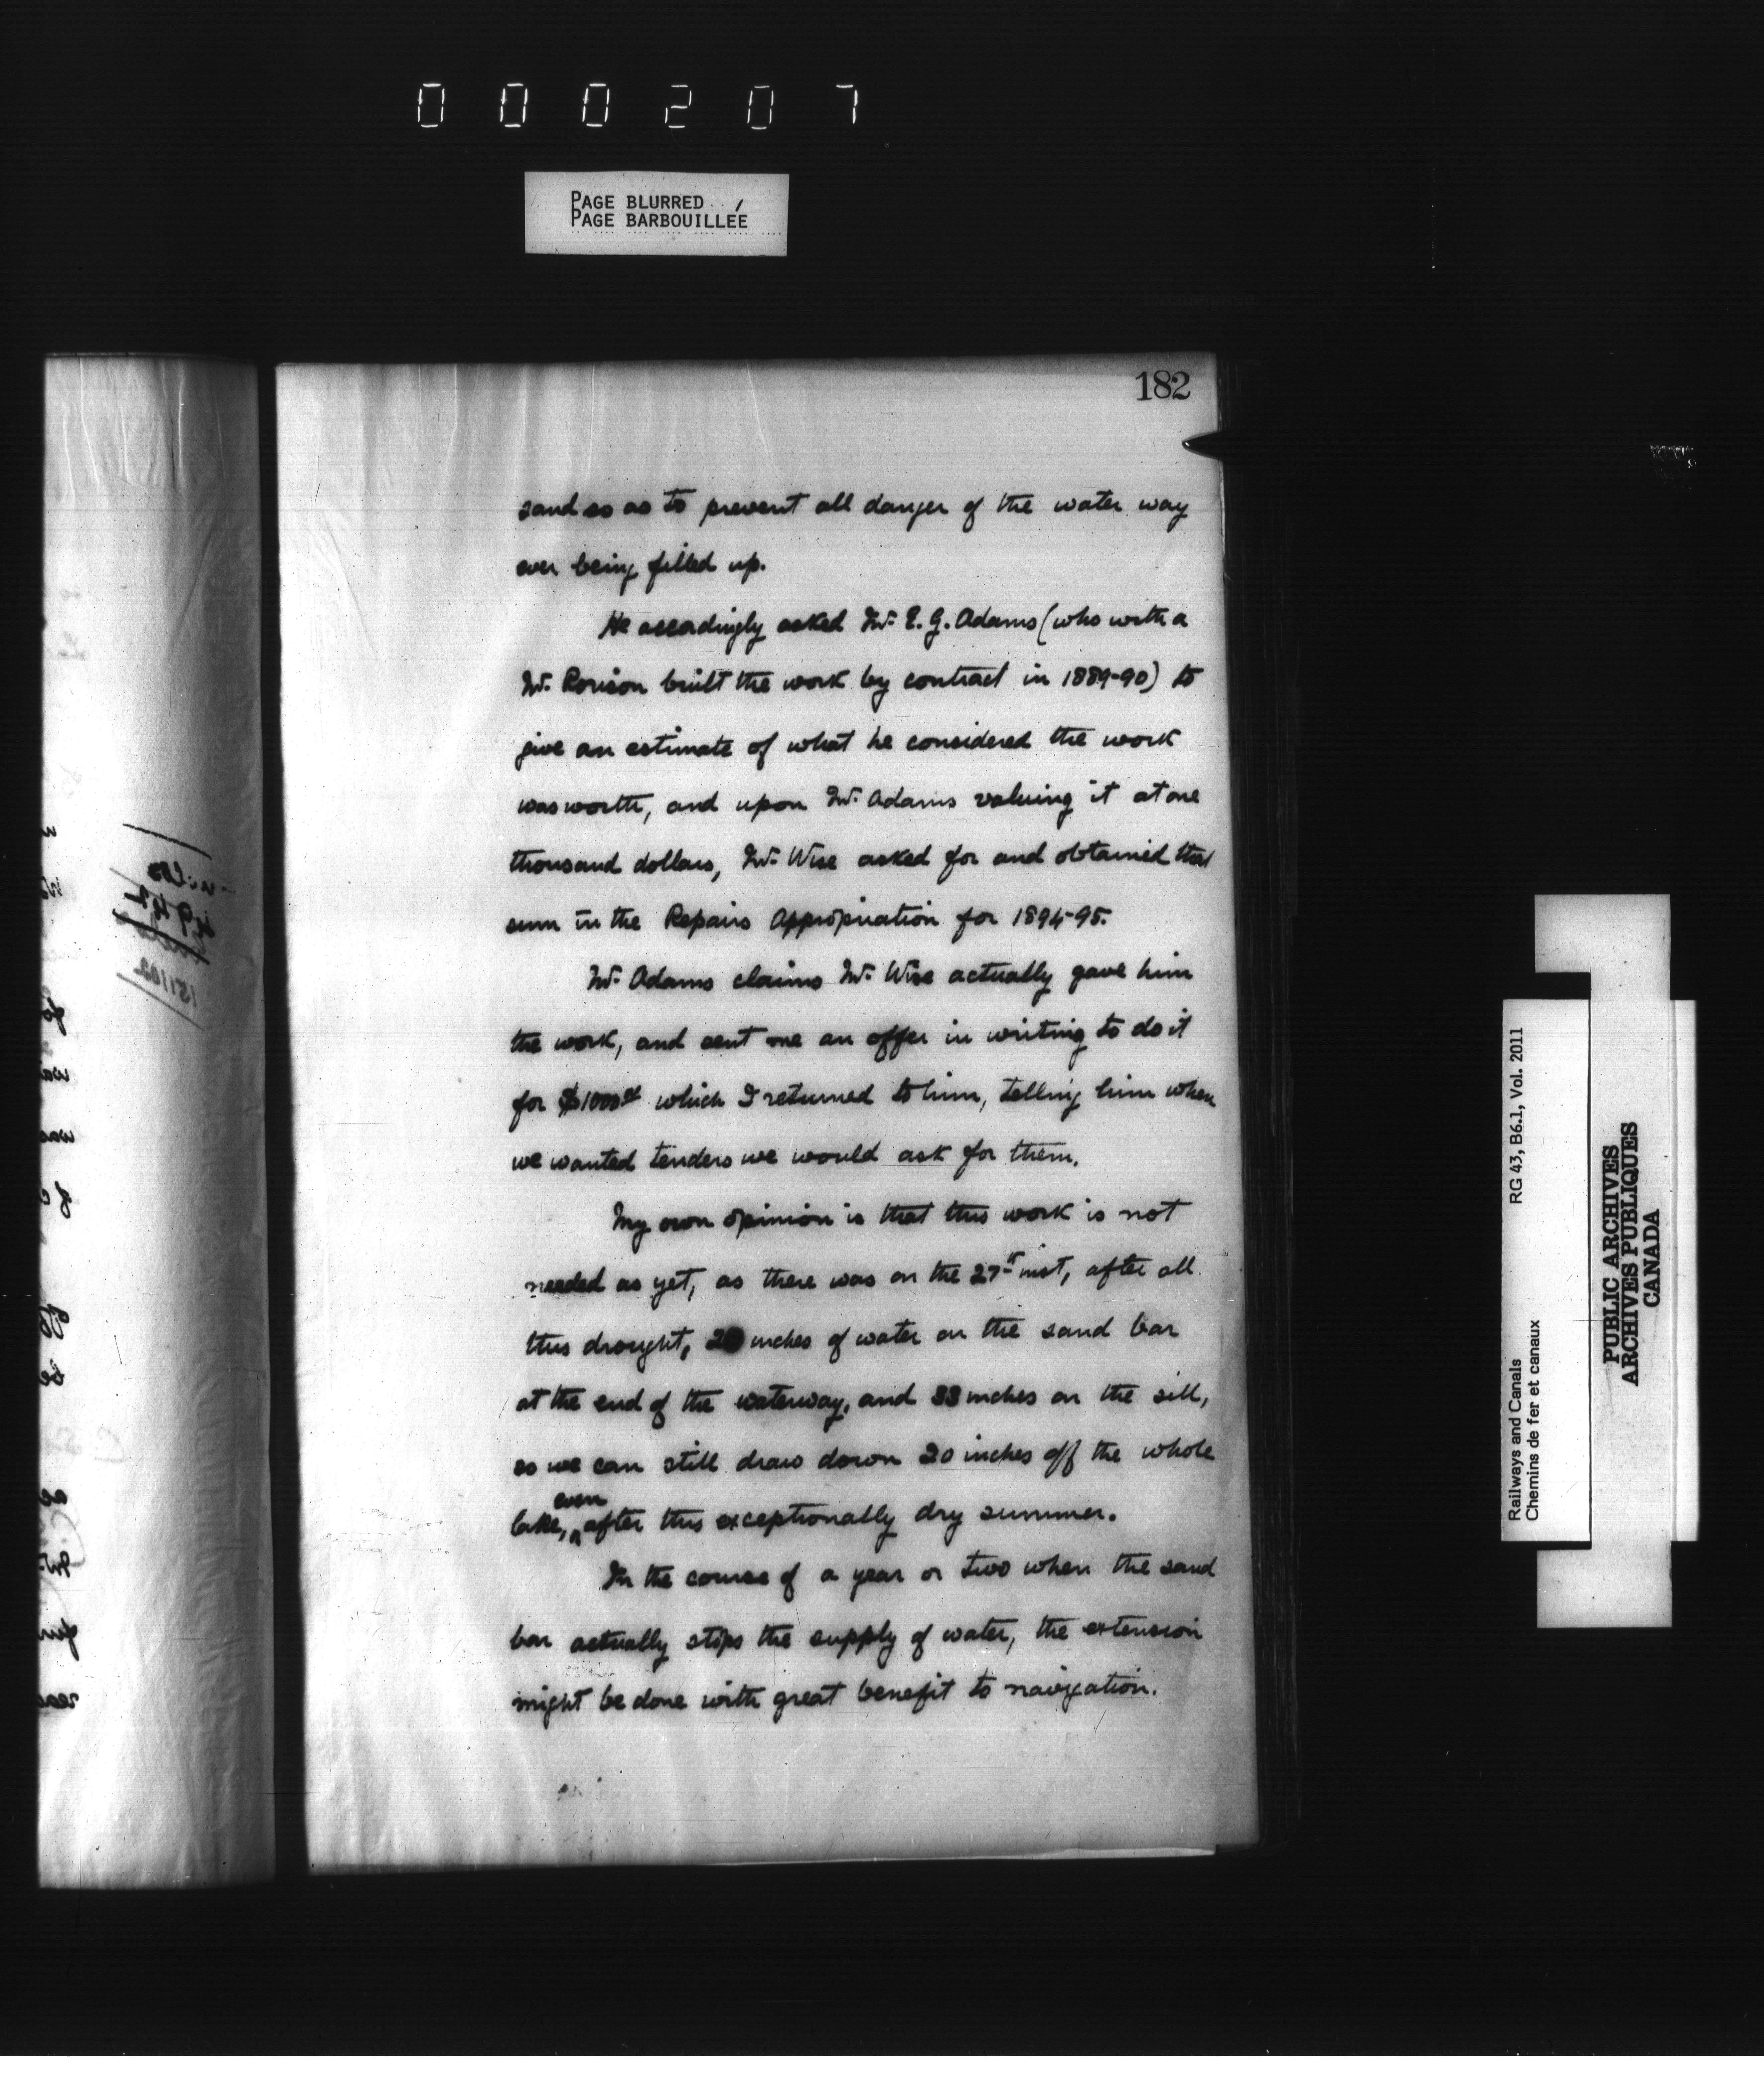 000207
PAGE BLURRED
PAGE BARBOUILLÉE
182
sand so as to prevent all danger of the water way
ever being filled up.
He accordingly asked Mr. E. G. Adams (who with a
Mr. Rorison built the work by contract in 1889-90) to
give an estimate of what he considered the work
was worth, and upon Mr. Adams valuing it at one
thousand dollars, Mr. Wise asked for and obtained that
sum in the Repairs Appropriation for 1894-95.
Mr. Adams claims Mr. Wise actually gave him
the work, and sent me an offer in writing to do it
for $1000 which I returned to him, telling him when
we wanted tenders we would ask for them.
My own opinion is that this work is not
needed as yet, as there was on the 27th inst, after all
this drought, inches of water on the sand bar
at the end of the waterway, and 33 inches on the sill,
so we can still draw down 20 inches off the whole
lake, even after this exceptionally dry summer.
In the course of a year or two when the sand
bar actually stops the supply of water, the extension
might be done with great benefit to navigation.
Railways and Canals RG 43, B6.1, Vol. 2011
Chemins de fer et canaux
PUBLIC ARCHIVES
ARCHIVES PUBLIQUES
CANADA